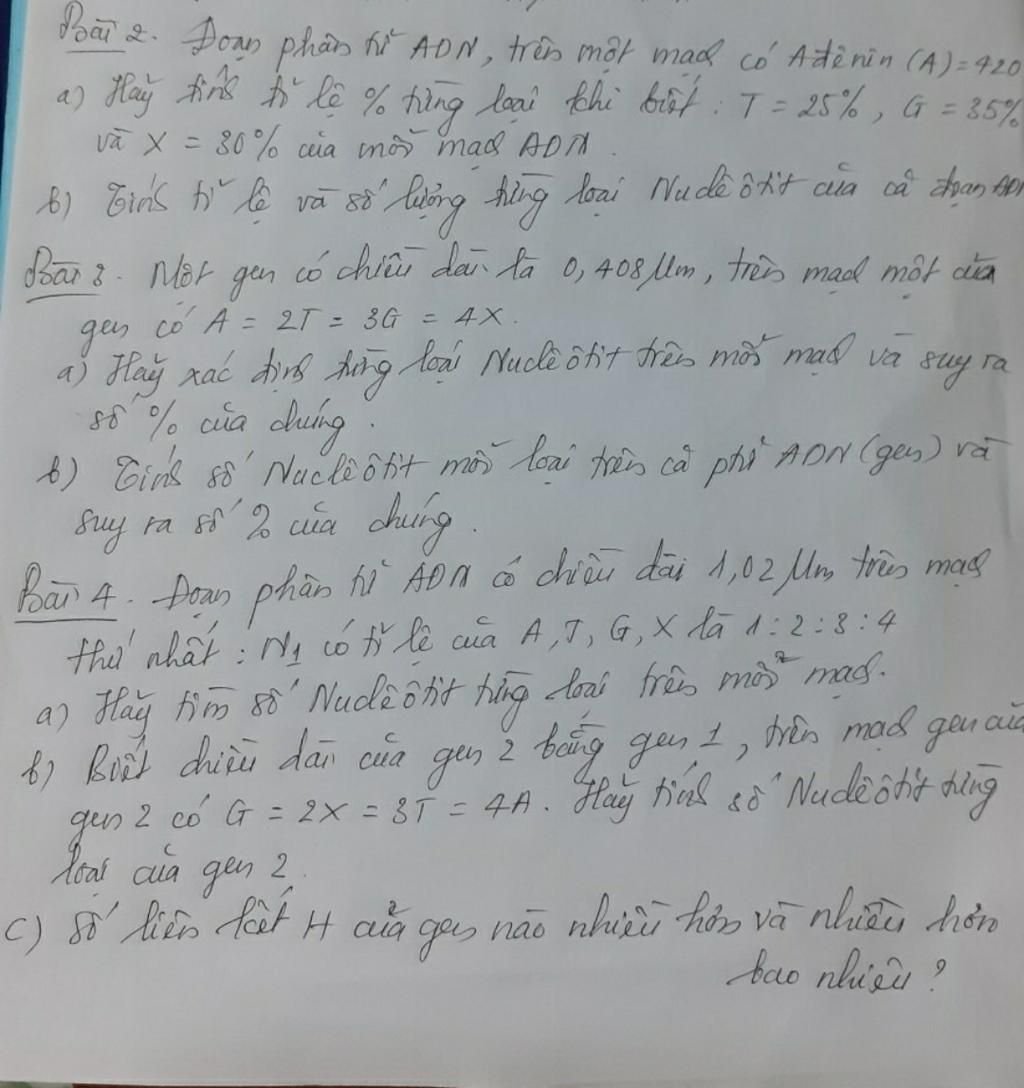 Bài 2. Đoạn phân tử ADN, trên một mạch có Ađênin (A) = 420
a) Hãy tính tỉ lệ % từng loại khi biết: T = 25%, G = 35%
và X = 30% của mỗi mạch ADN.
b) Tính tỉ lệ và số lượng từng loại Nuclêôtit của cả đoạn ADN
Bài 3. Một gen có chiều dài là 0,408 µm, trên mạch một của
gen có A = 2T = 3G = 4X.
a) Hãy xác định từng loại Nuclêôtit trên mỗi mạch và suy ra
số % của chúng.
b) Tính số Nuclêôtit mỗi loại trên cả ptử ADN (gen) và
suy ra số % của chúng.
Bài 4. Đoạn phân tử ADN có chiều dài 1,02 µm trên mạch
thứ nhất: N1 có tỉ lệ của A, T, G, X là 1:2:3:4
a) Hãy tìm số Nuclêôtit từng loại trên mỗi mạch.
b) Biết chiều dài của gen 2 bằng gen 1, trên mạch gen của
gen 2 có G = 2X = 3T = 4A. Hãy tính số Nuclêôtit từng
loại của gen 2.
c) Số liên kết H của gen nào nhiều hơn và nhiều hơn
bao nhiêu?